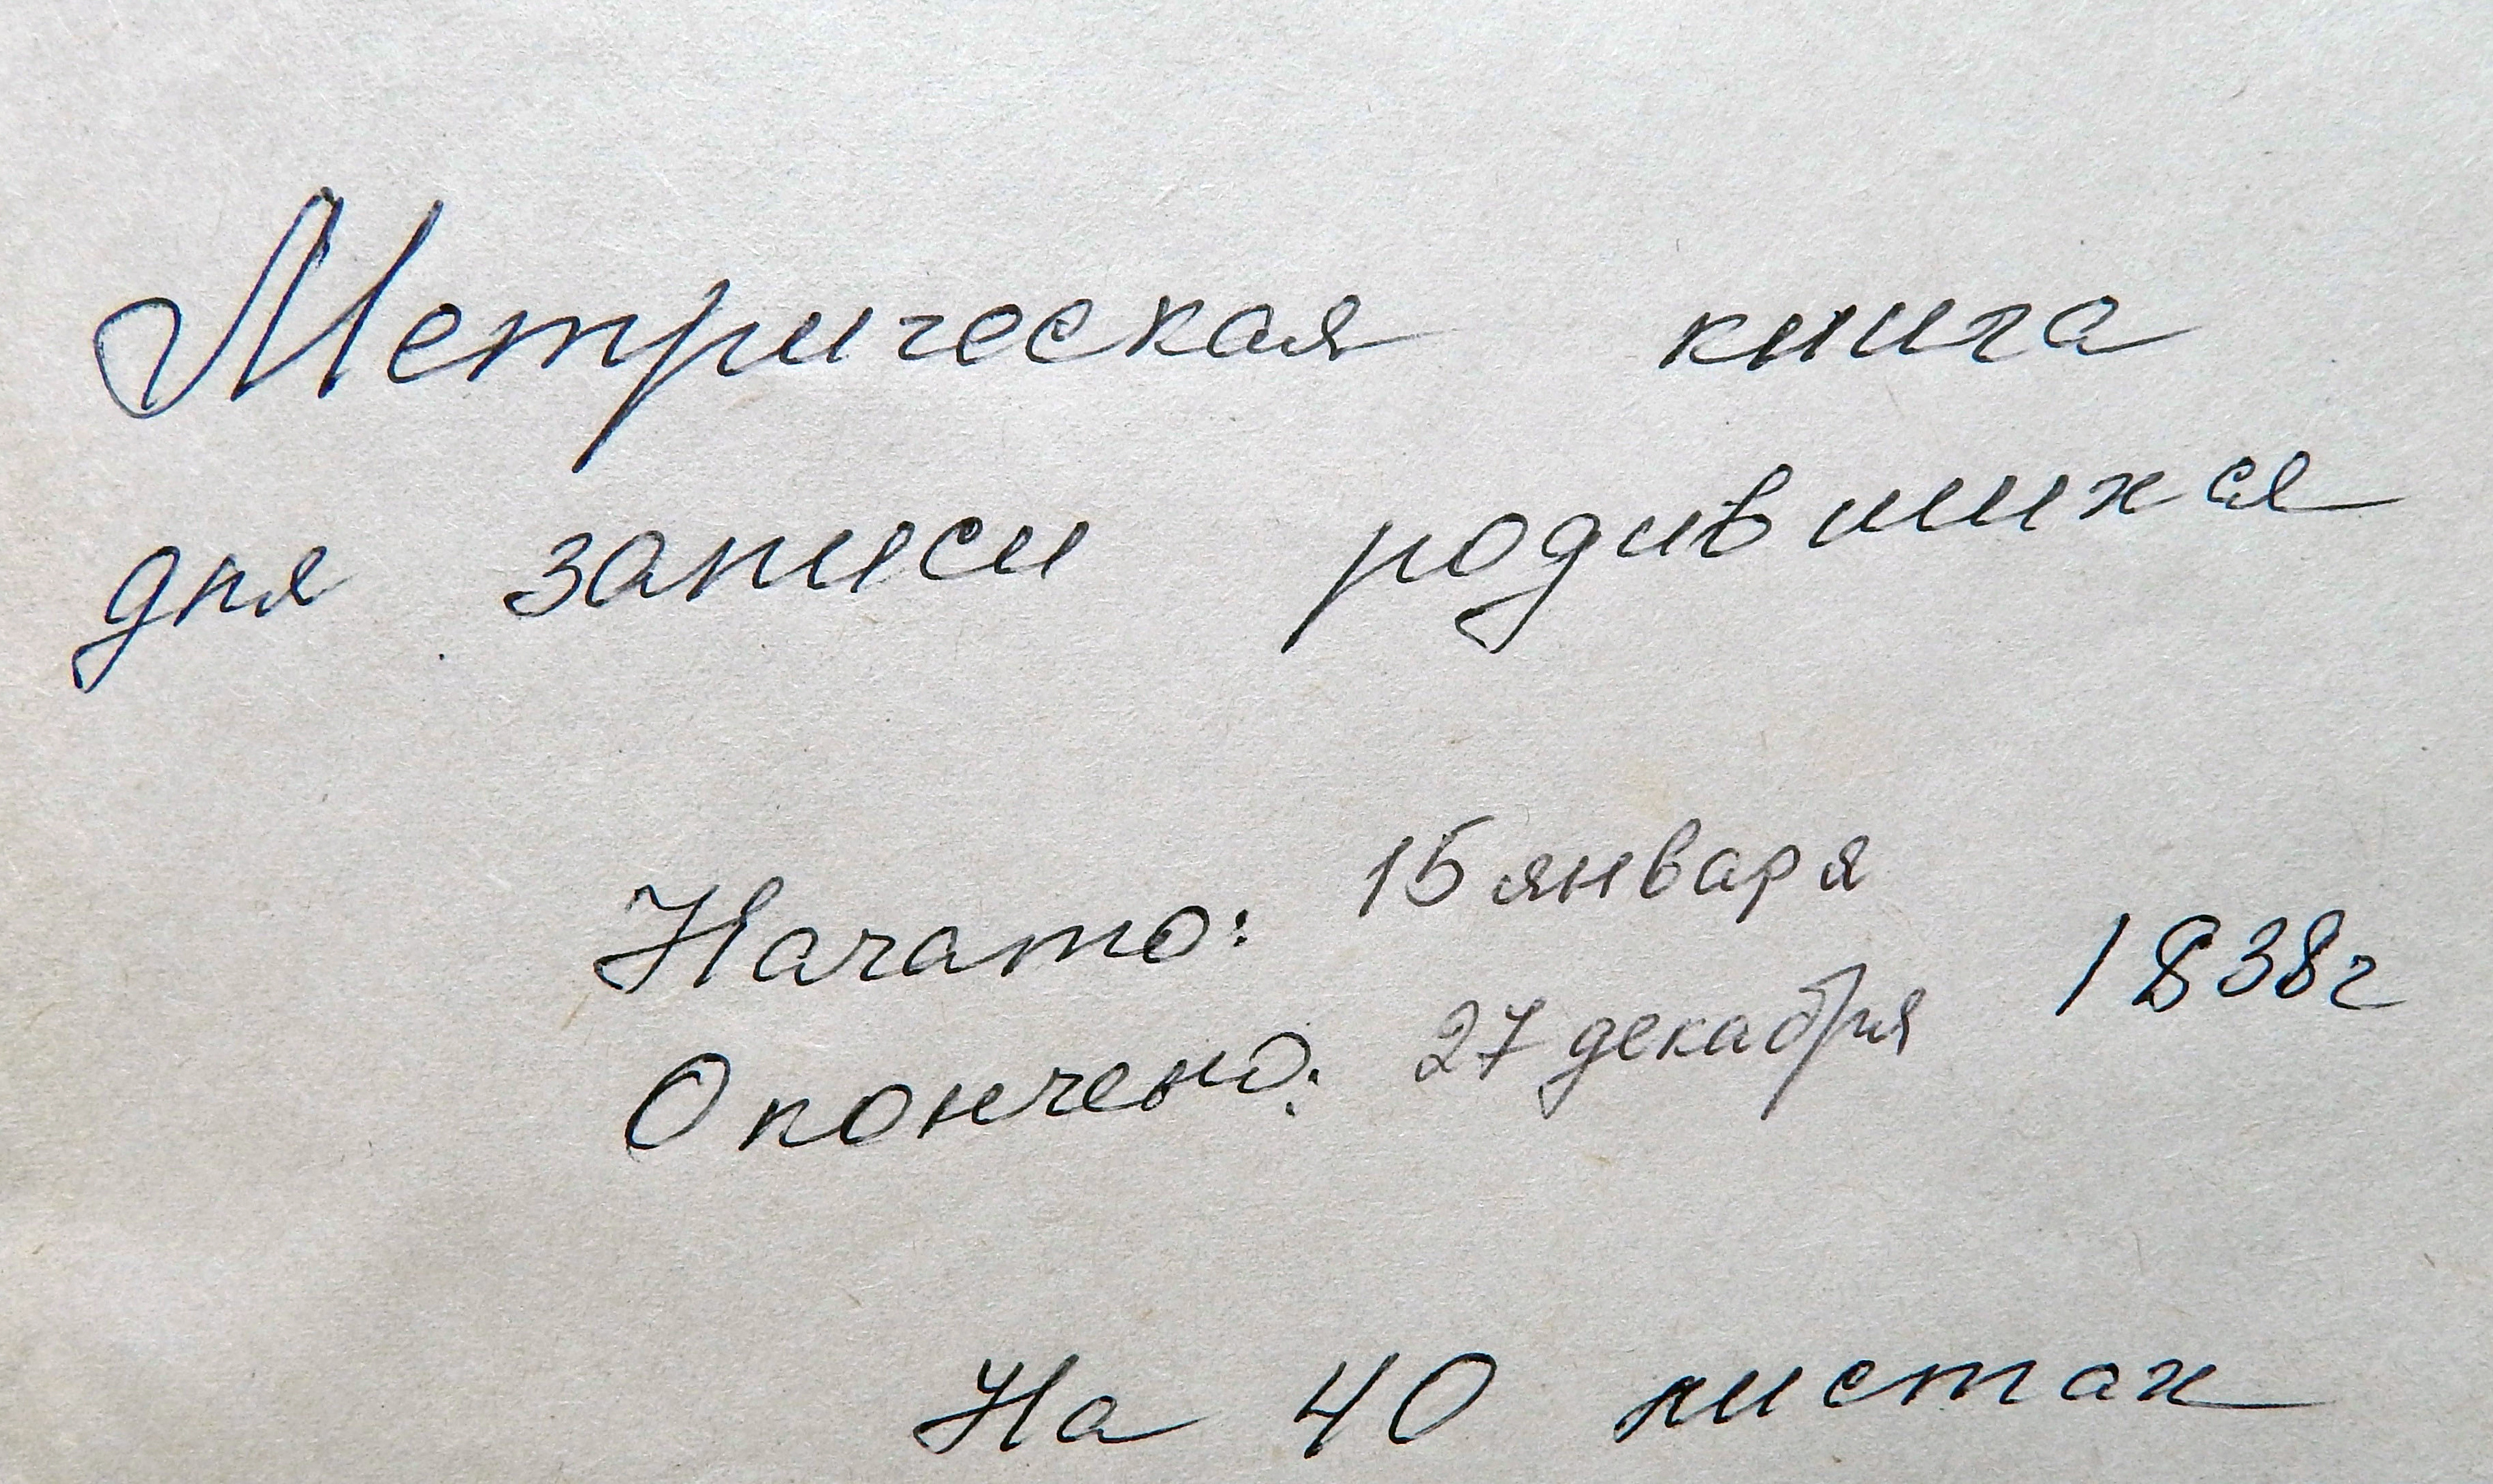 Метрическая книга
для записи родившихся
Начато: 15 января
1838г
Окончено: 27 декабря
На 40 листах